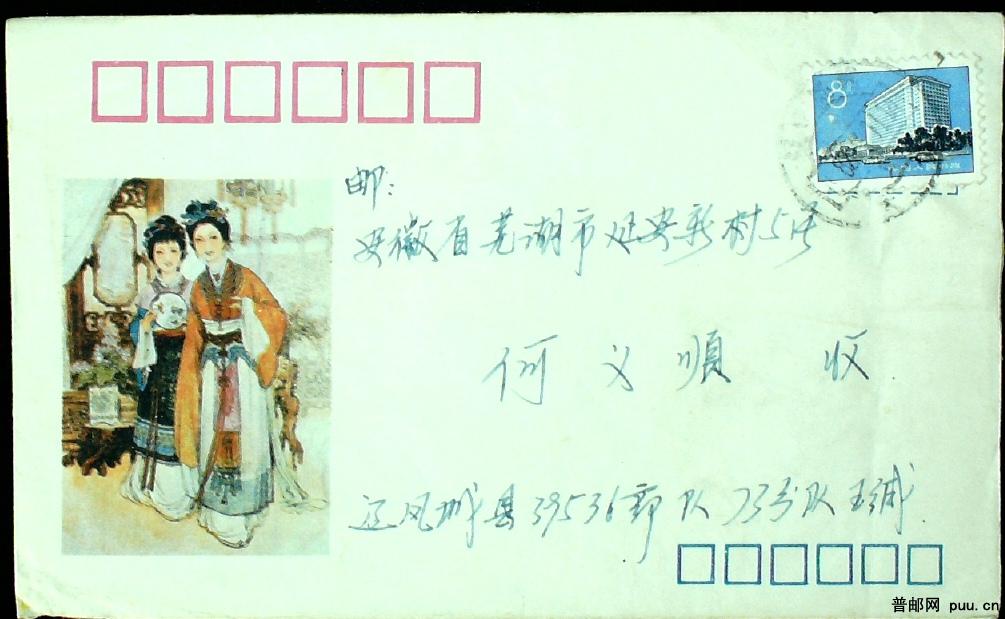 8分
邮:
安徽省芜湖市延安新村5号
何义順 收
辽凤城县39536部队73分队王诚
普邮网 puu.cn